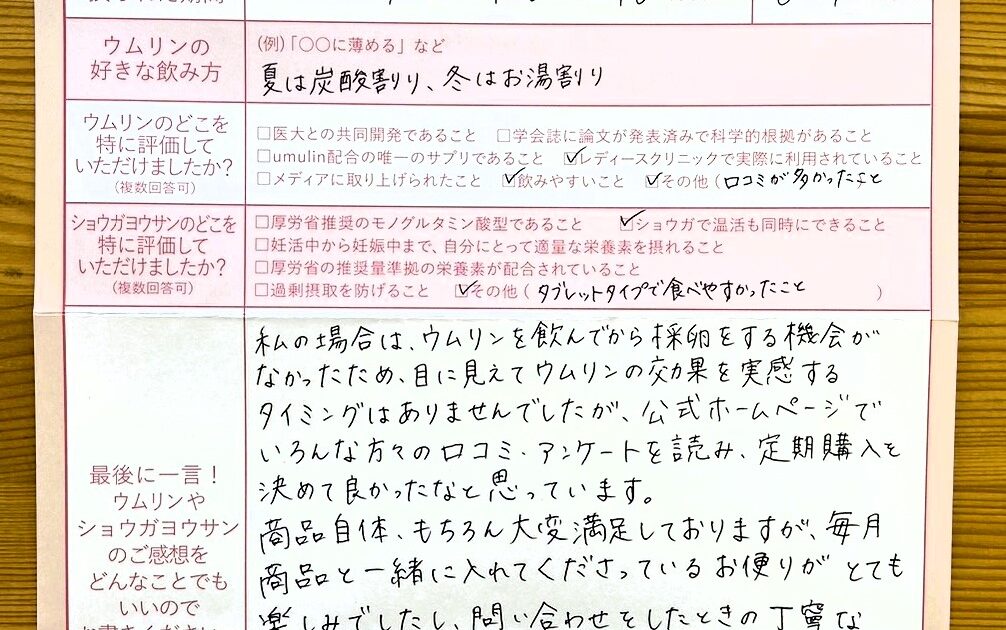 ウムリンの
好きな飲み方
(例)「〇〇に薄める」など
夏は炭酸割り、冬はお湯割り
ウムリンのどこを
特に評価して
いただけましたか?
(複数回答可)
□医大との共同開発であること □学会誌に論文が発表済みで科学的根拠があること
□umulin配合の唯一のサプリであること ☑レディースクリニックで実際に利用されていること
□メディアに取り上げられたこと ☑飲みやすいこと ☑その他(口コミが多かったこと
ショウガヨウサンのどこを
特に評価して
いただけましたか?
(複数回答可)
□厚労省推奨のモノグルタミン酸型であること ☑ショウガで温活も同時にできること
□妊活中から妊娠中まで、自分にとって適量な栄養素を摂れること
□厚労省の推奨量準拠の栄養素が配合されていること
□過剰摂取を防げること ☑その他(タブレットタイプで食べやすかったこと )
最後に一言!
ウムリンや
ショウガヨウサン
のご感想を
どんなことでも
いいので
私の場合は、ウムリンを飲んでから採卵をする機会が
なかったため、目に見えてウムリンの効果を実感する
タイミングはありませんでしたが、公式ホームページで
いろんな方々の口コミ・アンケートを読み、定期購入を
決めて良かったなと思っています。
商品自体、もちろん大変満足しておりますが、毎月
商品と一緒に入れてくださっているお便りがとても
楽しみでしたし、問い合わせをしたときの丁寧な